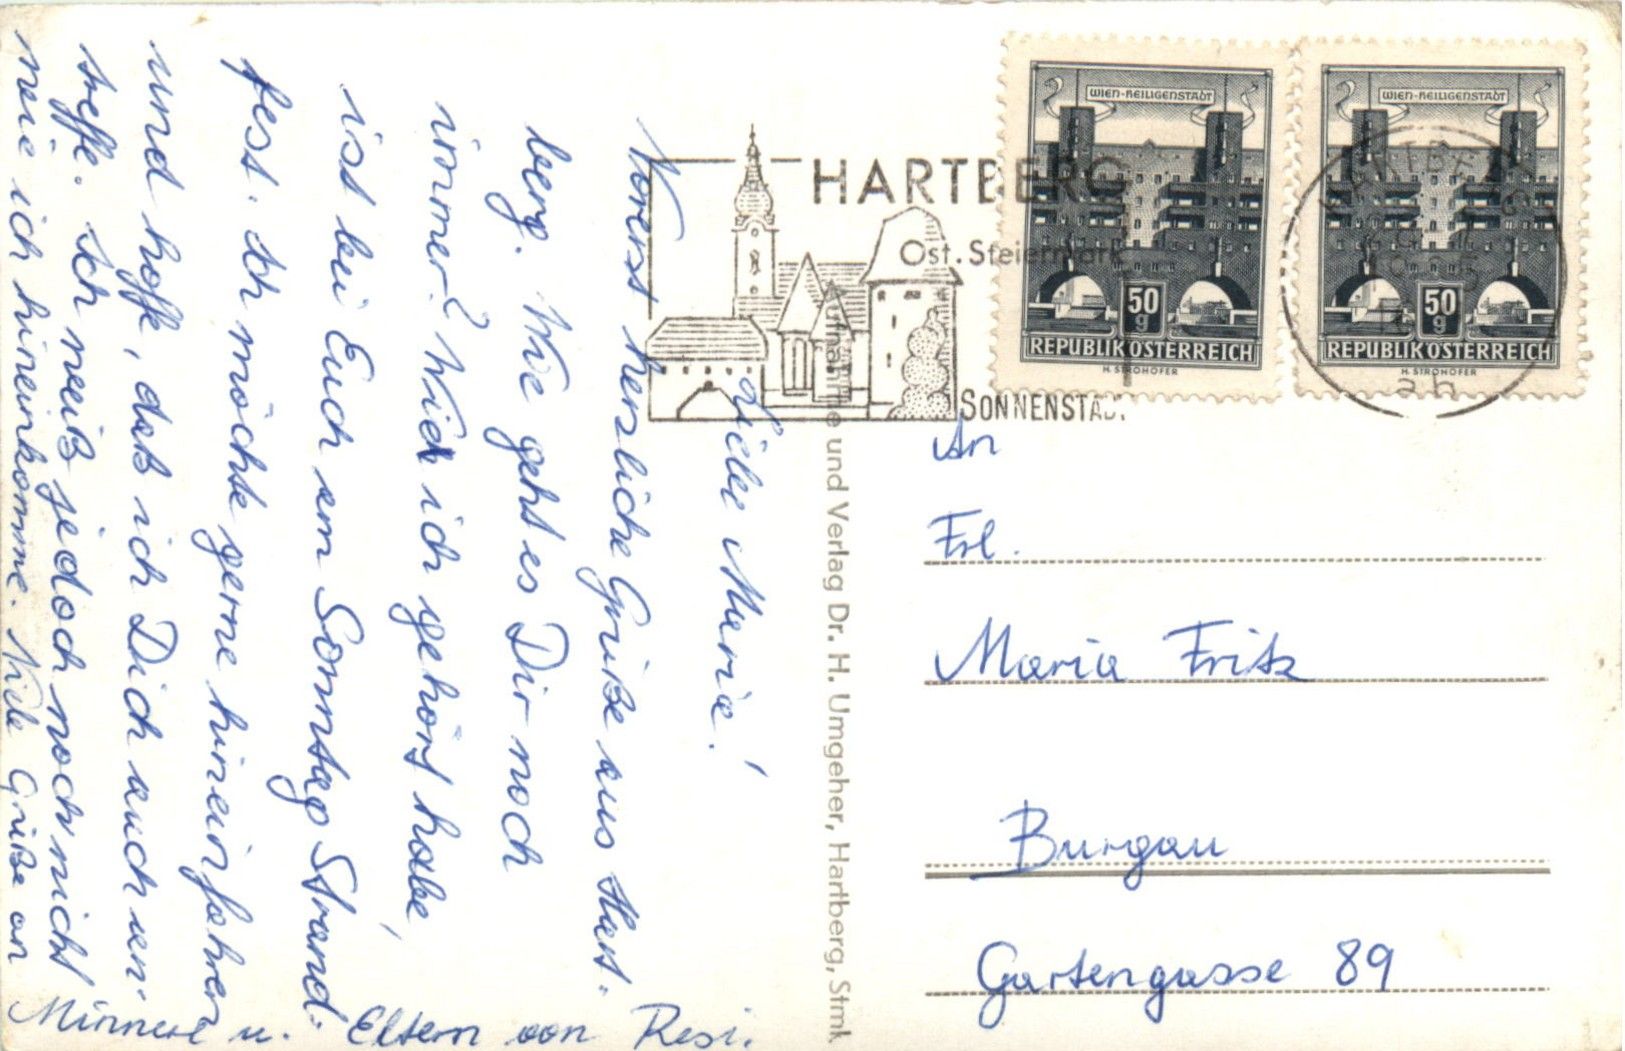 Liebe Marie!
Vorerst herzliche Grüße aus Hart-
berg. Wie geht es Dir noch
immer? Wie ich gehört habe,
ist bei Euch am Sonntag Strand-
fest. Ich möchte gerne hineinfahren
und hoffe, daß ich Dich auch an-
treffe. Ich weiß jedoch noch nicht
wie ich hineinkomme. Viele Grüße an
u. Eltern von Resi.
Aufnahme und Verlag Dr. H. Umgeher, Hartberg, Strmk
HARTBERG
Ost. Steiermark
SONNENSTADT
WIEN-HEILIGENSTADT
50
g
REPUBLIK ÖSTERREICH
H. STROHOFER
WIEN-HEILIGENSTADT
50
g
REPUBLIK ÖSTERREICH
H. STROHOFER
HARTBERG
An
Frl.
Maria Fritz
Burgau
Gartengasse 89